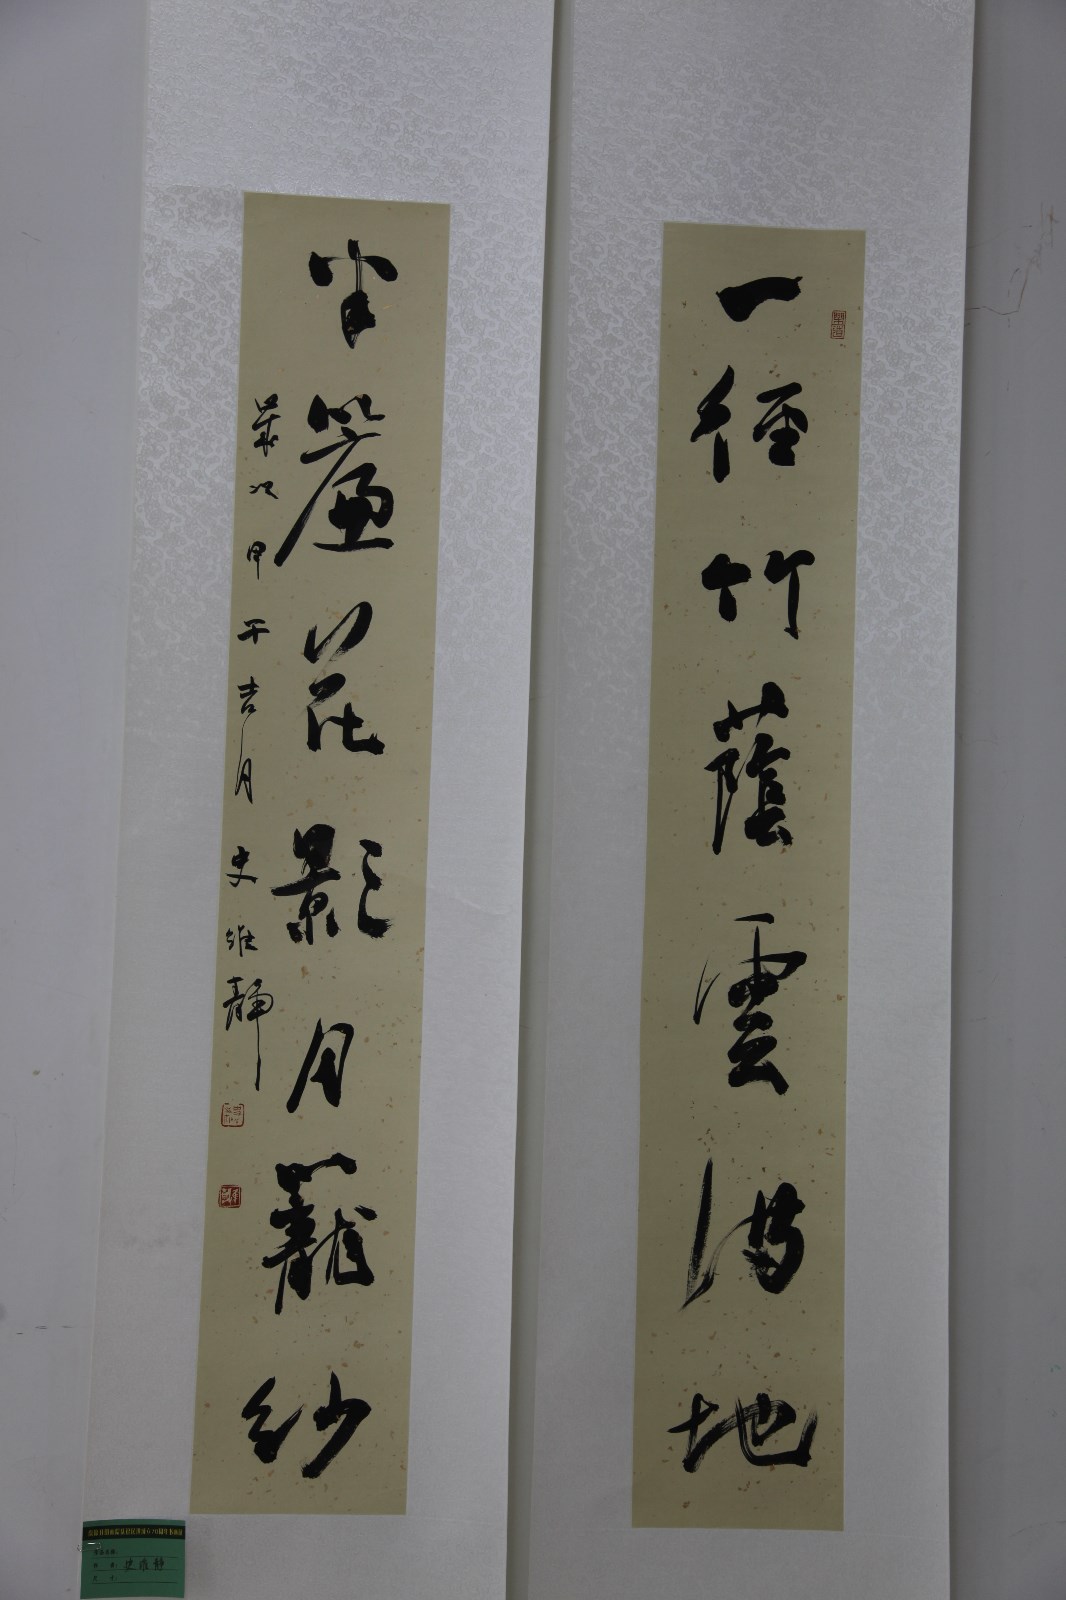 一徑竹蔭雲滿地
半簾花影月籠紗
歲次甲午吉月史維靜
史維靜